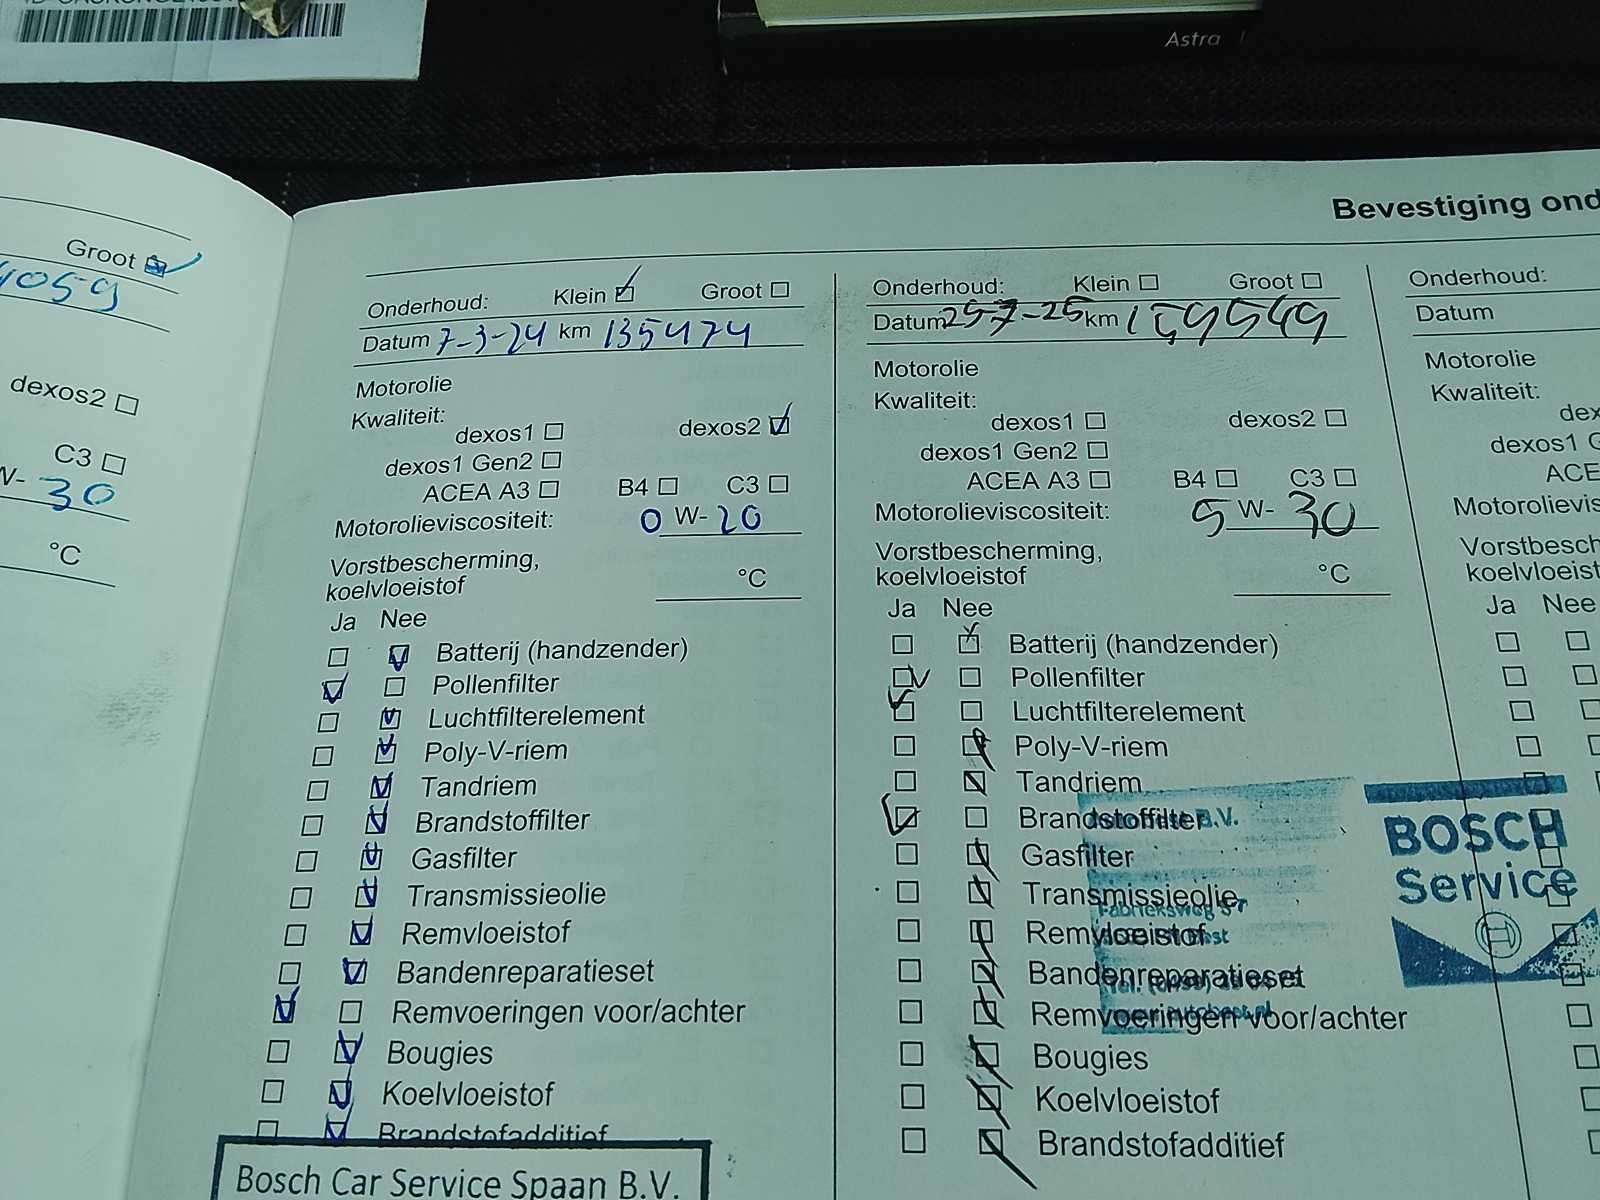 Astra
Bevestiging ond
Groot
4059
dexos2
C3
W- 30
°C
Onderhoud: Klein Groot
Datum 7-3-24 km 135474
Motorolie
Kwaliteit:
dexos1 dexos2
dexos1 Gen2
ACEA A3 B4 C3
Motorolieviscositeit: 0 W- 20
Vorstbescherming,
koelvloeistof °C
Ja Nee
Batterij (handzender)
Pollenfilter
Luchtfilterelement
Poly-V-riem
Tandriem
Brandstoffilter
Gasfilter
Transmissieolie
Remvloeistof
Bandenreparatieset
Remvoeringen voor/achter
Bougies
Koelvloeistof
Brandstofadditief
Bosch Car Service Spaan B.V.
Onderhoud: Klein Groot
Datum 25-7-25 km 159549
Motorolie
Kwaliteit:
dexos1 dexos2
dexos1 Gen2
ACEA A3 B4 C3
Motorolieviscositeit: 5 W- 30
Vorstbescherming,
koelvloeistof °C
Ja Nee
Batterij (handzender)
Pollenfilter
Luchtfilterelement
Poly-V-riem
Tandriem
Brandstoffilter
Gasfilter
Transmissieolie
Remvloeistof
Bandenreparatieset
Remvoeringen voor/achter
Bougies
Koelvloeistof
Brandstofadditief
B.V.
Fabrieksweg
BOSCH
Service
Onderhoud:
Datum
Motorolie
Kwaliteit:
dex
dexos1 G
ACE
Motorolievis
Vorstbesch
koelvloeist
Ja Nee